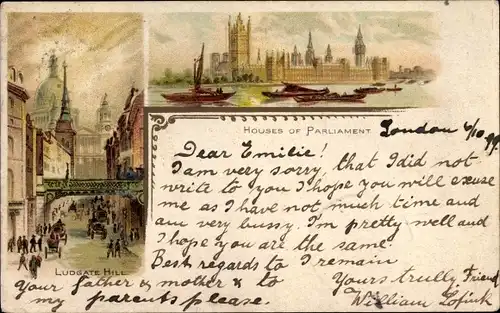 HOUSES OF PARLIAMENT.
London 4/10 99.
Dear Emilie!
I am very sorry, that I did not
write to you I hope you will excuse
me as I have not much time and
am very bussy. I'm pretty well and
I hope you are the same.
Best regards to I remain
LUDGATE HILL
Your father & mother & to
my parents please.
Yours trully Friend
William